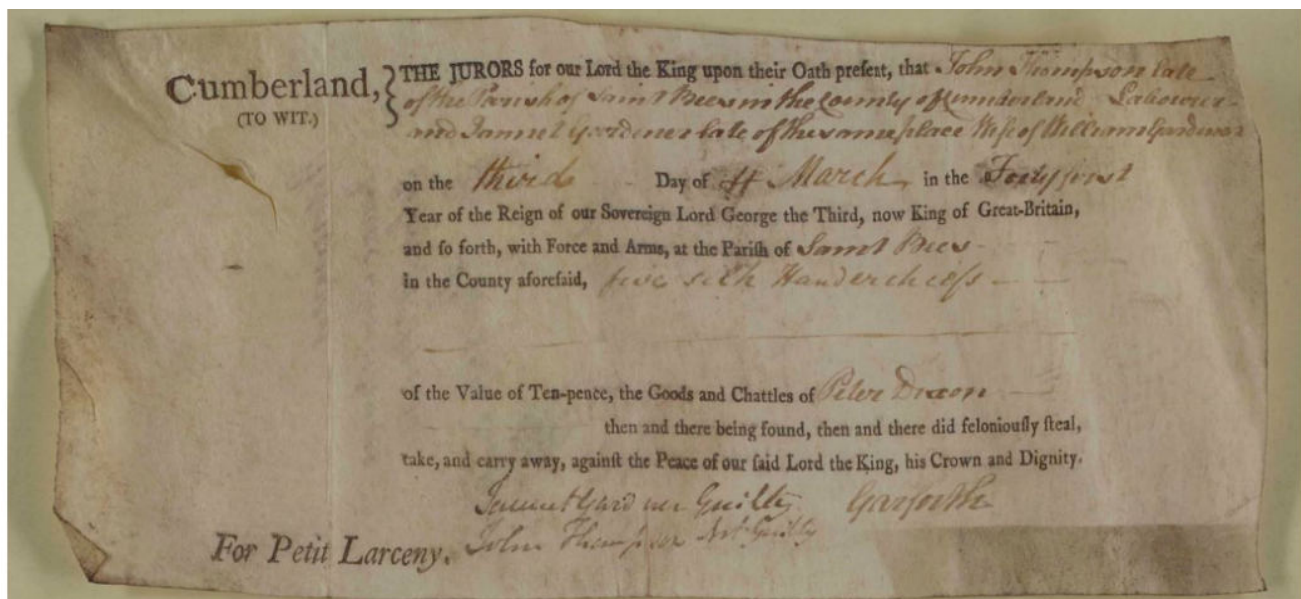 Cumberland,
(TO WIT.)
THE JURORS for our Lord the King upon their Oath preſent, that John Thompson late
of the Parish of Saint Bees in the County of Cumberland Labourer
and Jannet Gardiner late of the same place Wife of William Gardiner
on the third Day of March in the Forty first
Year of the Reign of our Sovereign Lord George the Third, now King of Great-Britain,
and ſo forth, with Force and Arms, at the Pariſh of Saint Bees
in the County aforeſaid, five silk Handerchiefs
of the Value of Ten-pence, the Goods and Chattles of Peter Dixon
then and there being found, then and there did feloniouſly ſteal,
take, and carry away, againſt the Peace of our ſaid Lord the King, his Crown and Dignity.
Jannet Gardiner Guilty Garforth
John Thompson Not Guilty
For Petit Larceny.